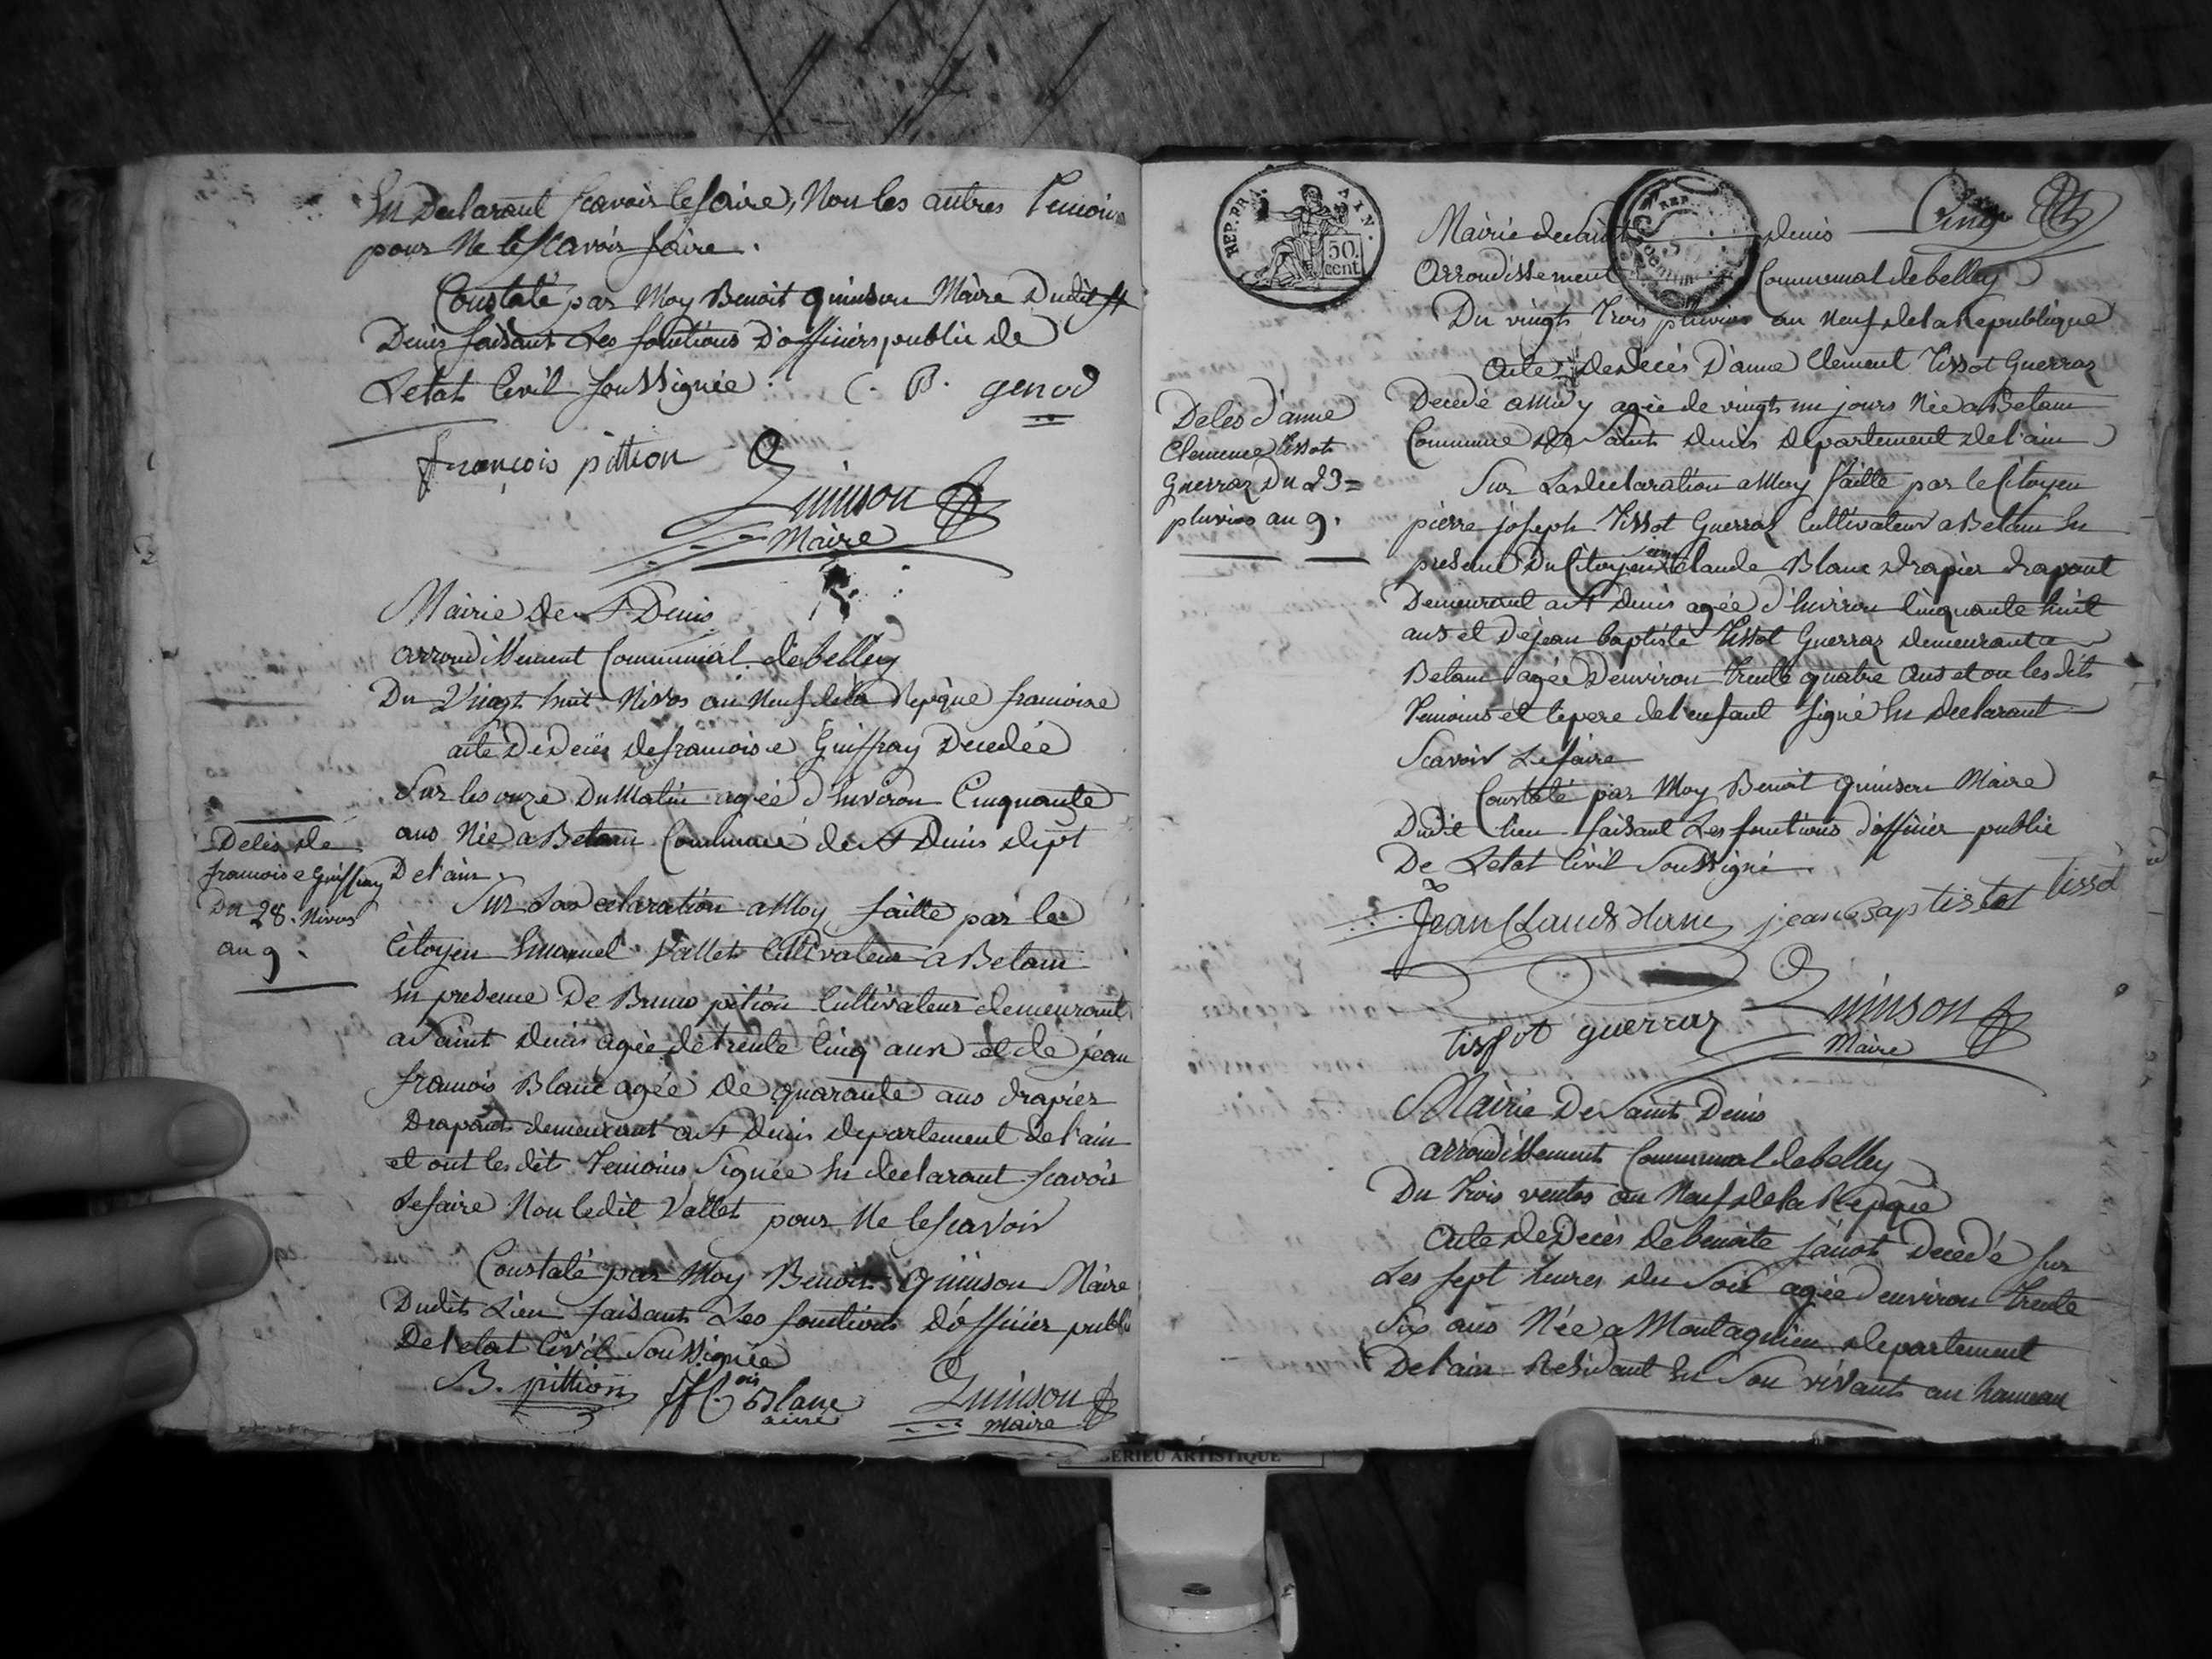 En Declarant scavoir le faire, Non les autres Temoins
pour Ne le scavoir faire.
Constaté par Moy Benoit quinson Maire Dudit St
Denis faisant Les fontions D'offiiers public de
Letat Civil soussignée. C. B. genod
françois pittion
Quinson
Maire
Mairie de St Denis
arrondissement Communal debelley
Du Vingt huit Nivos an Neuf dela Repque francoise
acte De Deces defrancoise Guiffray Decedée
Sur les onze Du Matin agée d'Environ Cinquante
ans Née a Betam Commune de St Denis dept
Del'ain
Deces de
francoise Guiffray
Du 28. Nivos
an 9.
Sur La declaration a Moy faitte par le
Citoyen Emanuel Vallet Cultivateur a Betam
En presence De Bruno pition Cultivateur demeurant
a Saint denis agée de trente Cinq ans et de jean
francois Blanc agée de quarante ans drapier
Drapant demeurant a St Denis departement de l'ain
et ont les dits Temoins Signée En declarant scavoir
Lefaire Non ledit Vallet pour Ne lescavoir
Constaté par Moy Benoit Quinson Maire
Dudit Lieu faisant Les fontions D'offiier publi
De l'etat Civil Soussignée
B. pittion J f ois Blanc
ainé
Quinson
maire
REP. FRA
50
cent
Mairie de Saint denis Cinq
Arrondissement Communal debelley
Du vingt Trois pluvios an Neuf dela Republique
Acte de deces D'anne Clement Tissot Guerraz
Deces d'anne
Clemence Tissot
Guerraz Du 23=
pluvios an 9.
Decedé a Midy agée de vingt un jours Née a Betam
Commune de Saint Denis departement de l'ain
Sur La declaration a Moy faitte par le Citoyen
pierre joseph Tissot Guerraz Cultivateur a Betam En
presence Du Citoyen Claude Blanc drapier drapant
Demeurant a St denis agée d'Environ Cinquante huit
ans et de jean baptiste Tissot Guerraz demeurant a
Betam agée D'environ trente quatre ans et on les dits
Temoins et le pere de l'enfant signé En declarant
Scavoir Lefaire
Constaté par Moy Benoit Quinson Maire
Dudit lieu faisant Les fontions d'offiier public
De Letat Civil Soussigné
Jean Claude blanc jean Baptistet tisso
tissot guerraz Quinson
Maire
Mairie De Saint Denis
arrondissement Communal debelley
Du Trois ventos an Neuf dela Repque
Acte de Deces de benoite Decedé sur
Les sept heures du Soir agée d'environ trente
Six ans Née a Montagnieu departement
Del'ain Residant En Son vivant au hameau
SERIEU ARTISTIQUE